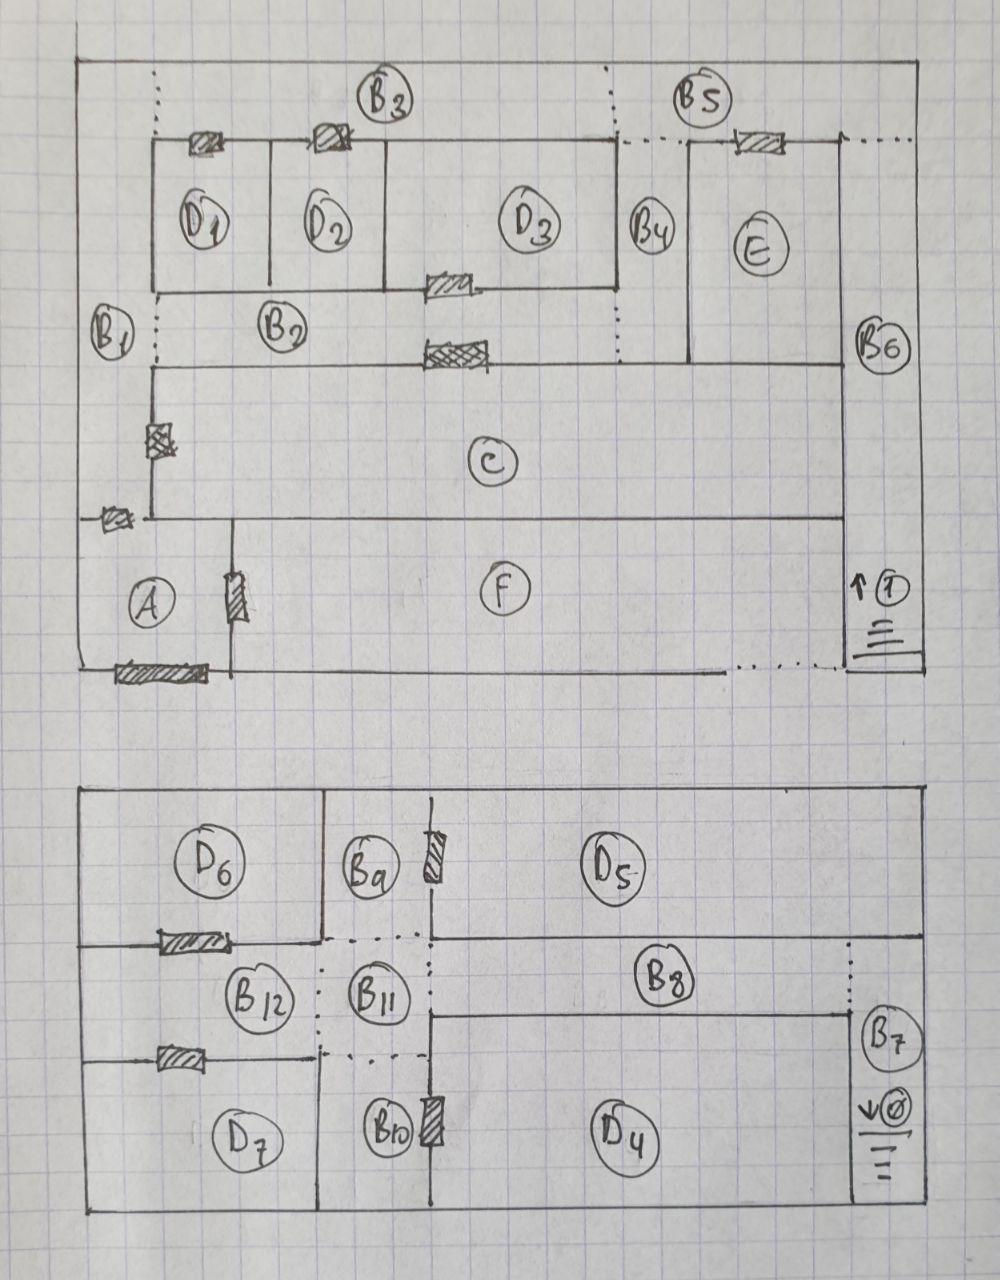 B3
B5
D1
D2
D3
B4
E
B1
B2
B6
C
A
F
↑ 1
D6
B9
D5
B12
B11
B8
B7
↓ 0
D7
B10
D4